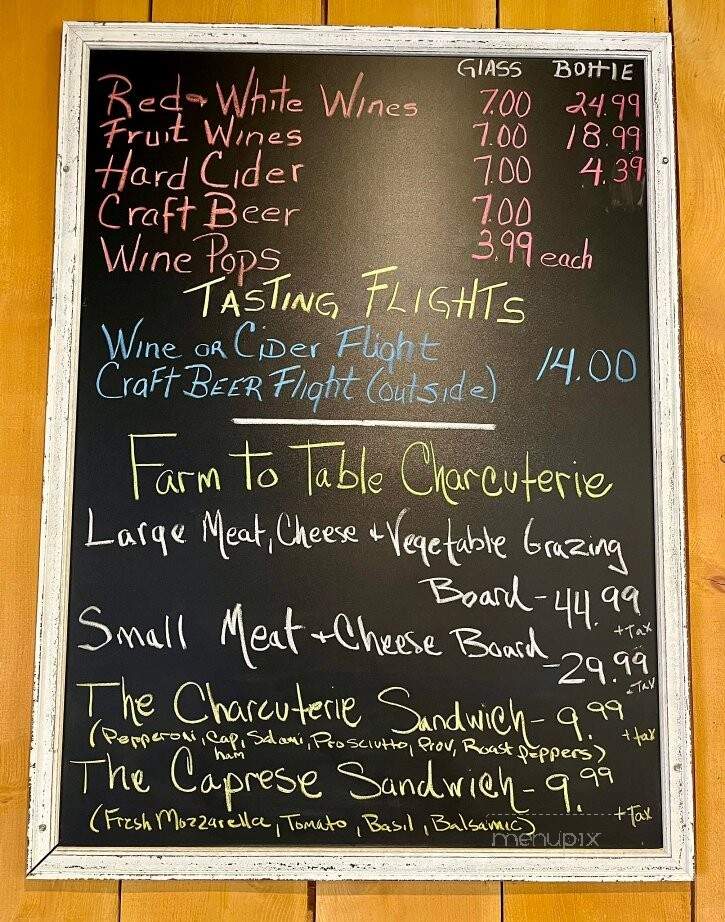 GLASS BOttlE
Red + White Wines 7.00 24.99
Fruit Wines 7.00 18.99
Hard Cider 7.00 4.39
Craft Beer 7.00
Wine Pops 3.99 each
TASTING FLIGHTs
Wine or CiDer Flight
CraFt BEER Flight (outside) 14.00
Farm To Table Charcuterie
Large Meat, Cheese + Vegetable Grazing
Board - 44.99
+Tax
Small Meat + Cheese Board - 29.99
+Tax
The Charcuterie Sandwich - 9.99
+tax
(Pepperoni, Cap, Salami, Prosciutto, Prov, Roast peppers)
ham
The Caprese Sandwich - 9.99
+Tax
(Fresh Mozzarella, Tomato, Basil, Balsamic)
menupix